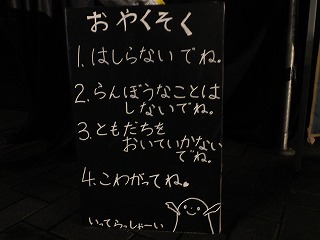 おやくそく
1.はしらないでね。
2.らんぼうなことは
しないでね。
3.ともだちを
おいていかない
でね。
4.こわがってね。
いってらっしゃーい